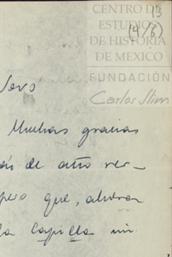 CENTRO DE
ESTUDIOS
DE HISTORIA
DE MEXICO
FUNDACIÓN
Carlos Slim
13
(4/6)
Muchas gracias
de año
pero que, ahora
la capilla